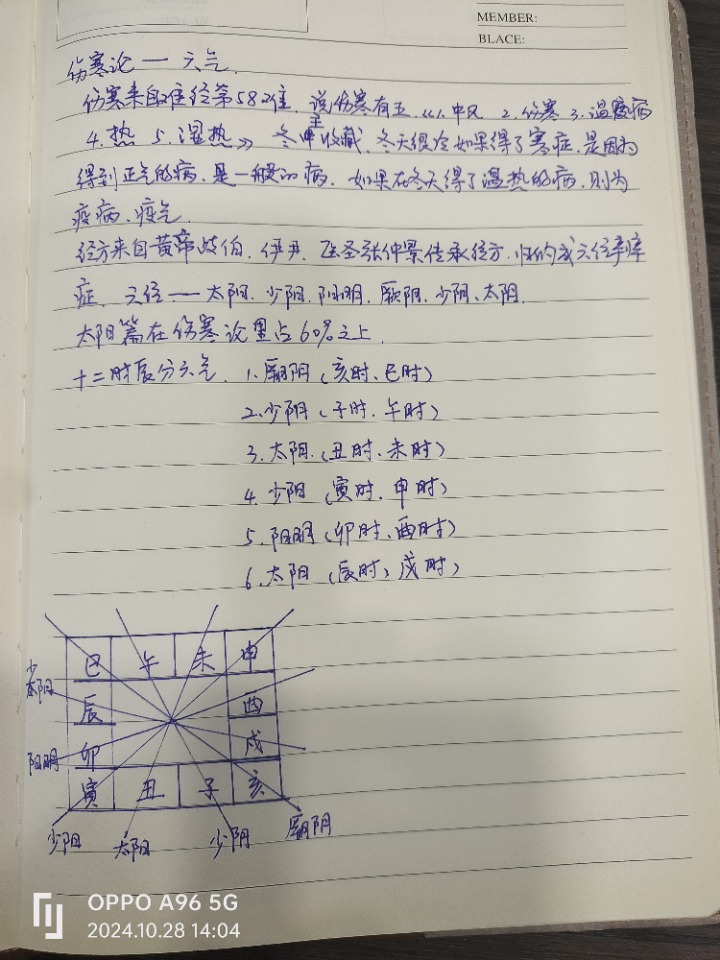 MEMBER:
BLACE:
伤寒论 — 六气.
伤寒来自难经第58难. 说伤寒有五《1.中风 2.伤寒 3.温疫病
4.热 5.湿热》 冬主收藏、冬天很冷如果得了寒症. 是因为
得到正气的病. 是一般的病. 如果在冬天得了温热的病. 则为
疫病. 疫气.
经方来自黄帝岐伯. 伊尹. 医圣张仲景传承经方. 归纳成六经辛
症. 六经——太阳. 少阳. 阳明. 厥阴. 少阴. 太阴.
太阳篇在伤寒论里占60%之上.
十二时辰分六气. 1.厥阴(亥时、巳时)
2.少阴(子时. 午时)
3.太阴.(丑时、未时)
4.少阳(寅时、申时)
5.阳明(卯时、酉时)
6.太阳(辰时, 戌时)
巳 午 未 申
太阳 辰 酉
阳明 卯 戌
寅 丑 子 亥
少阳 太阴 少阴 厥阴
OPPO A96 5G
2024.10.28 14:04